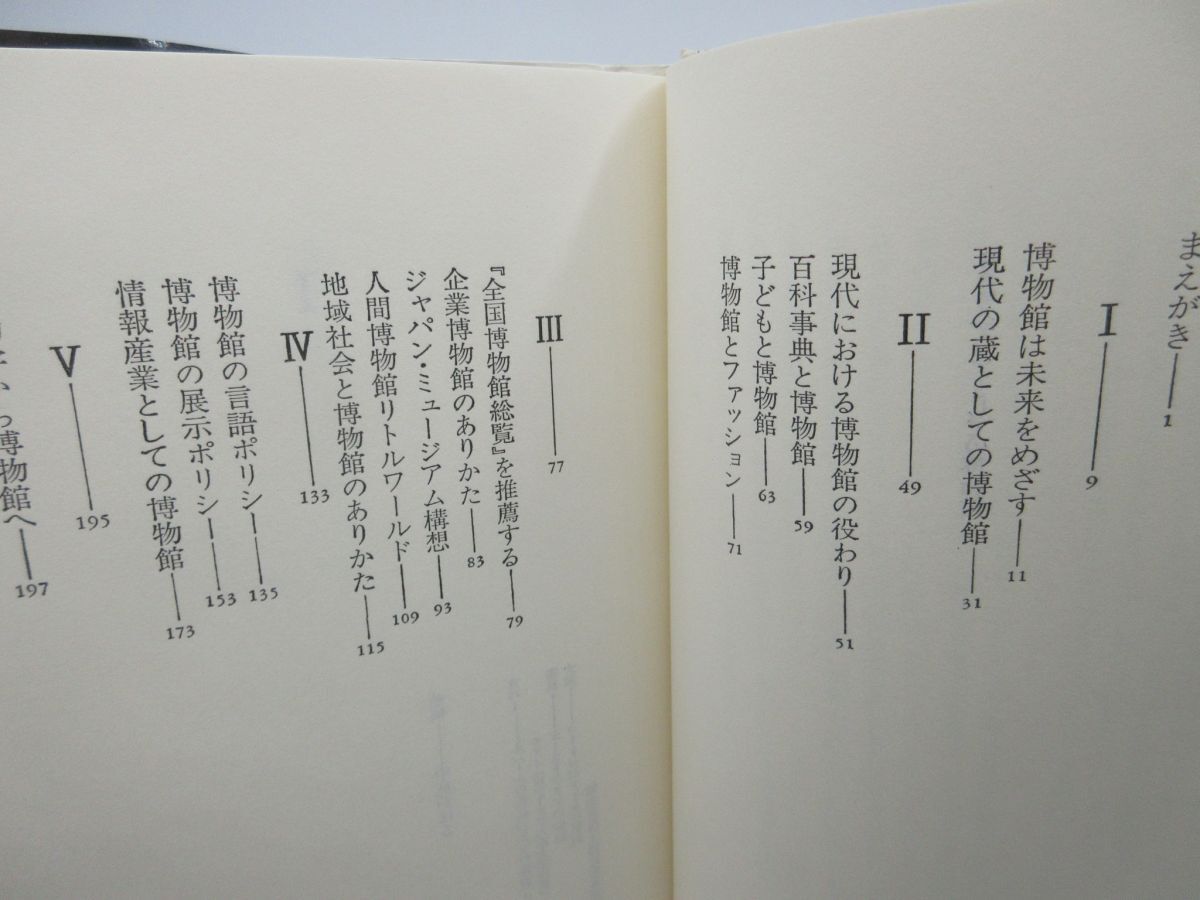 まえがき――1
I――9
博物館は未来をめざす――11
現代の蔵としての博物館――31
II――49
現代における博物館の役わり――51
百科事典と博物館――59
子どもと博物館――63
博物館とファッション――71
III――77
『全国博物館総覧』を推薦する――79
企業博物館のありかた――83
ジャパン・ミュージアム構想――93
人間博物館リトルワールド――109
地域社会と博物館のありかた――115
IV――133
博物館の言語ポリシー――135
博物館の展示ポリシー――153
情報産業としての博物館――173
V――195
博物館へ――197